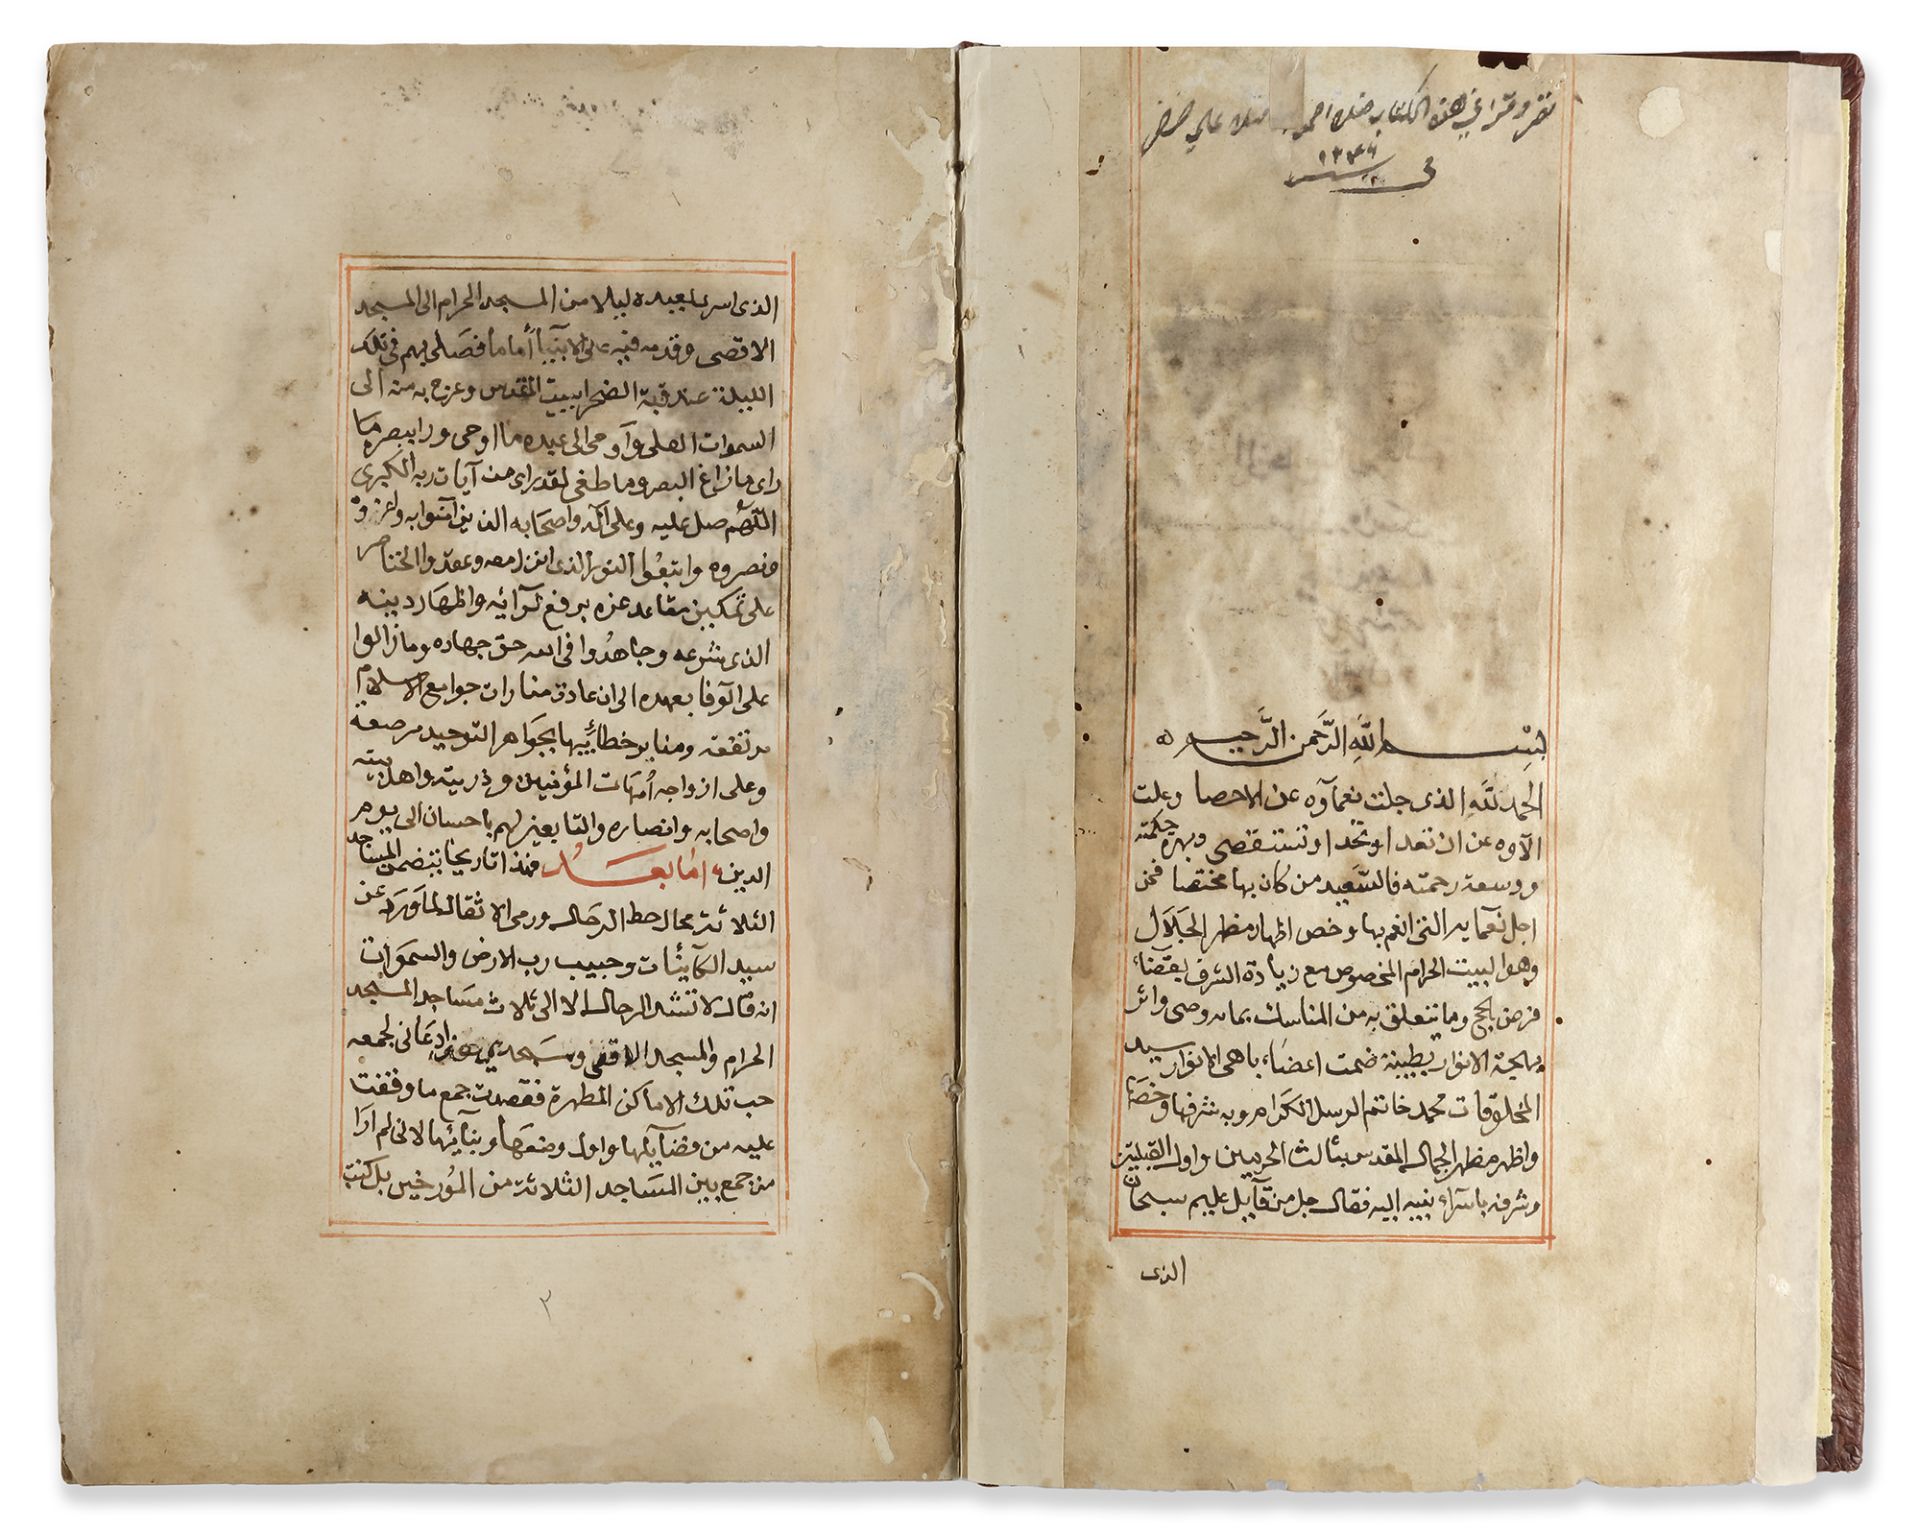 نظر وقرا في هذه الكتاب احمد علي
في سنه ١٣٤٦
بسم الله الرَّحمن الرَّحيم
الحمد للَّه الذى جلت نعمآوه عن الاحصا وعلت
الآوه عن ان تعد او تحد او تستقصى وبهره حكمته
ووسعة رحمته فالسَّعيد من كان بها مختصا فمن
اجل نعمايه التى انعم بها وخص اظهار مظهر الجَلَال
وهو البيت الحرام المخصوص مع زيادة الشرف بقضاء
فرض الحج وما يتعلق به من المناسك بمانه وصى واثر
بهاجة الانوار بطيبة ضمت اعضاء باهى الانوار سيد
المخلوقات محمد خاتم الرسل الكرام وبه شرفها وخصها
واظهر مظهر الجمال المقدس بثالث الحرمين واول القبلتين
وشرفه باسرآء نبيه اليه فقال جل من قآيل عليم سبحان
الذى
الذى اسرى بعبده ليلا من المسجد الحرام الى المسجد
الاقصى وقدمه فيه على الانبيآ أماما فصَلى بهم فى تلك
الليلة عند قبة الصخرا ببيت المقدس وعرج به منه الى
السموات العلى وآوحى الى عبده ما اوحى وراى ببصره ما
راى ما زاغ البصر وما طغى لقد راى من آيات ربه الكبرى
اللَّهُم صل عليه وعلى آله واصحَابه الذين آمنوا به وعزروه
ونصروه واتبعُوا النور الذى انزل معه وعقدوا الخناصر
على تمكين مقاعد عزه برفع لوآئه واظهَار دينه
الذى شرعه وجاهدُوا فى الله حق جهاده وما زالوا
على الوفا بعهده الى ان عادت منارات جوامع الاسلام
مرتفعة ومنابر خطائبها بجَواهر التوحيد مرصعة
وعلى ازواجه اُمهَات المؤمنين وذريته واهل بيته
واصحابه وانصاره والتابعين لهم باحسان الى يوم
الدين امَا بعَــد فهذا تاريخا يتضمن المساجد
الثلاثة محال حط الرحَال ورمى الاثقال لما وَرَد عن
سيد الكآئنات وحبيب رب الارض والسموَات
انه قال لا تشد الرحال الا الى ثلاث مسَاجد المسجد
الحرام والمسجد الاقصى ومسَجدى هذا دعَانى لجمعه
حب تلك الاماكن المطهرة فقصدت جمع ما وقفت
عليه من فضآيلها واول وضعهَا وبنآئها لانى لم ارَا
من جمع بين المسَاجد الثلاثة من المؤرخين بل كنت
٢